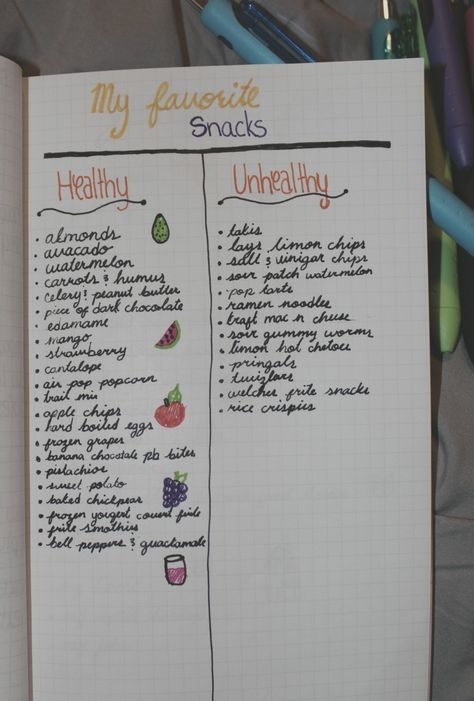 My favorite
Snacks
Healthy
almonds
avacado
watermelon
carrots & humus
celery & peanut butter
piece of dark chocolate
edamame
mango
strawberry
cantalope
air pop popcorn
trail mix
apple chips
hard boiled eggs
frozen grapes
banana chocolate pb bites
pistachios
sweet potato
baked chickpeas
frozen yougert covert frite
frite smothies
bell peppers & guactamale
Unhealthy
takis
lays limon chips
salt & vinigar chips
sour patch watermelon
pop tarts
ramen noodles
kraft mac n cheese
sour gummy worms
limon hot chetoes
pringals
twizlars
welches frite snacks
rice crispies